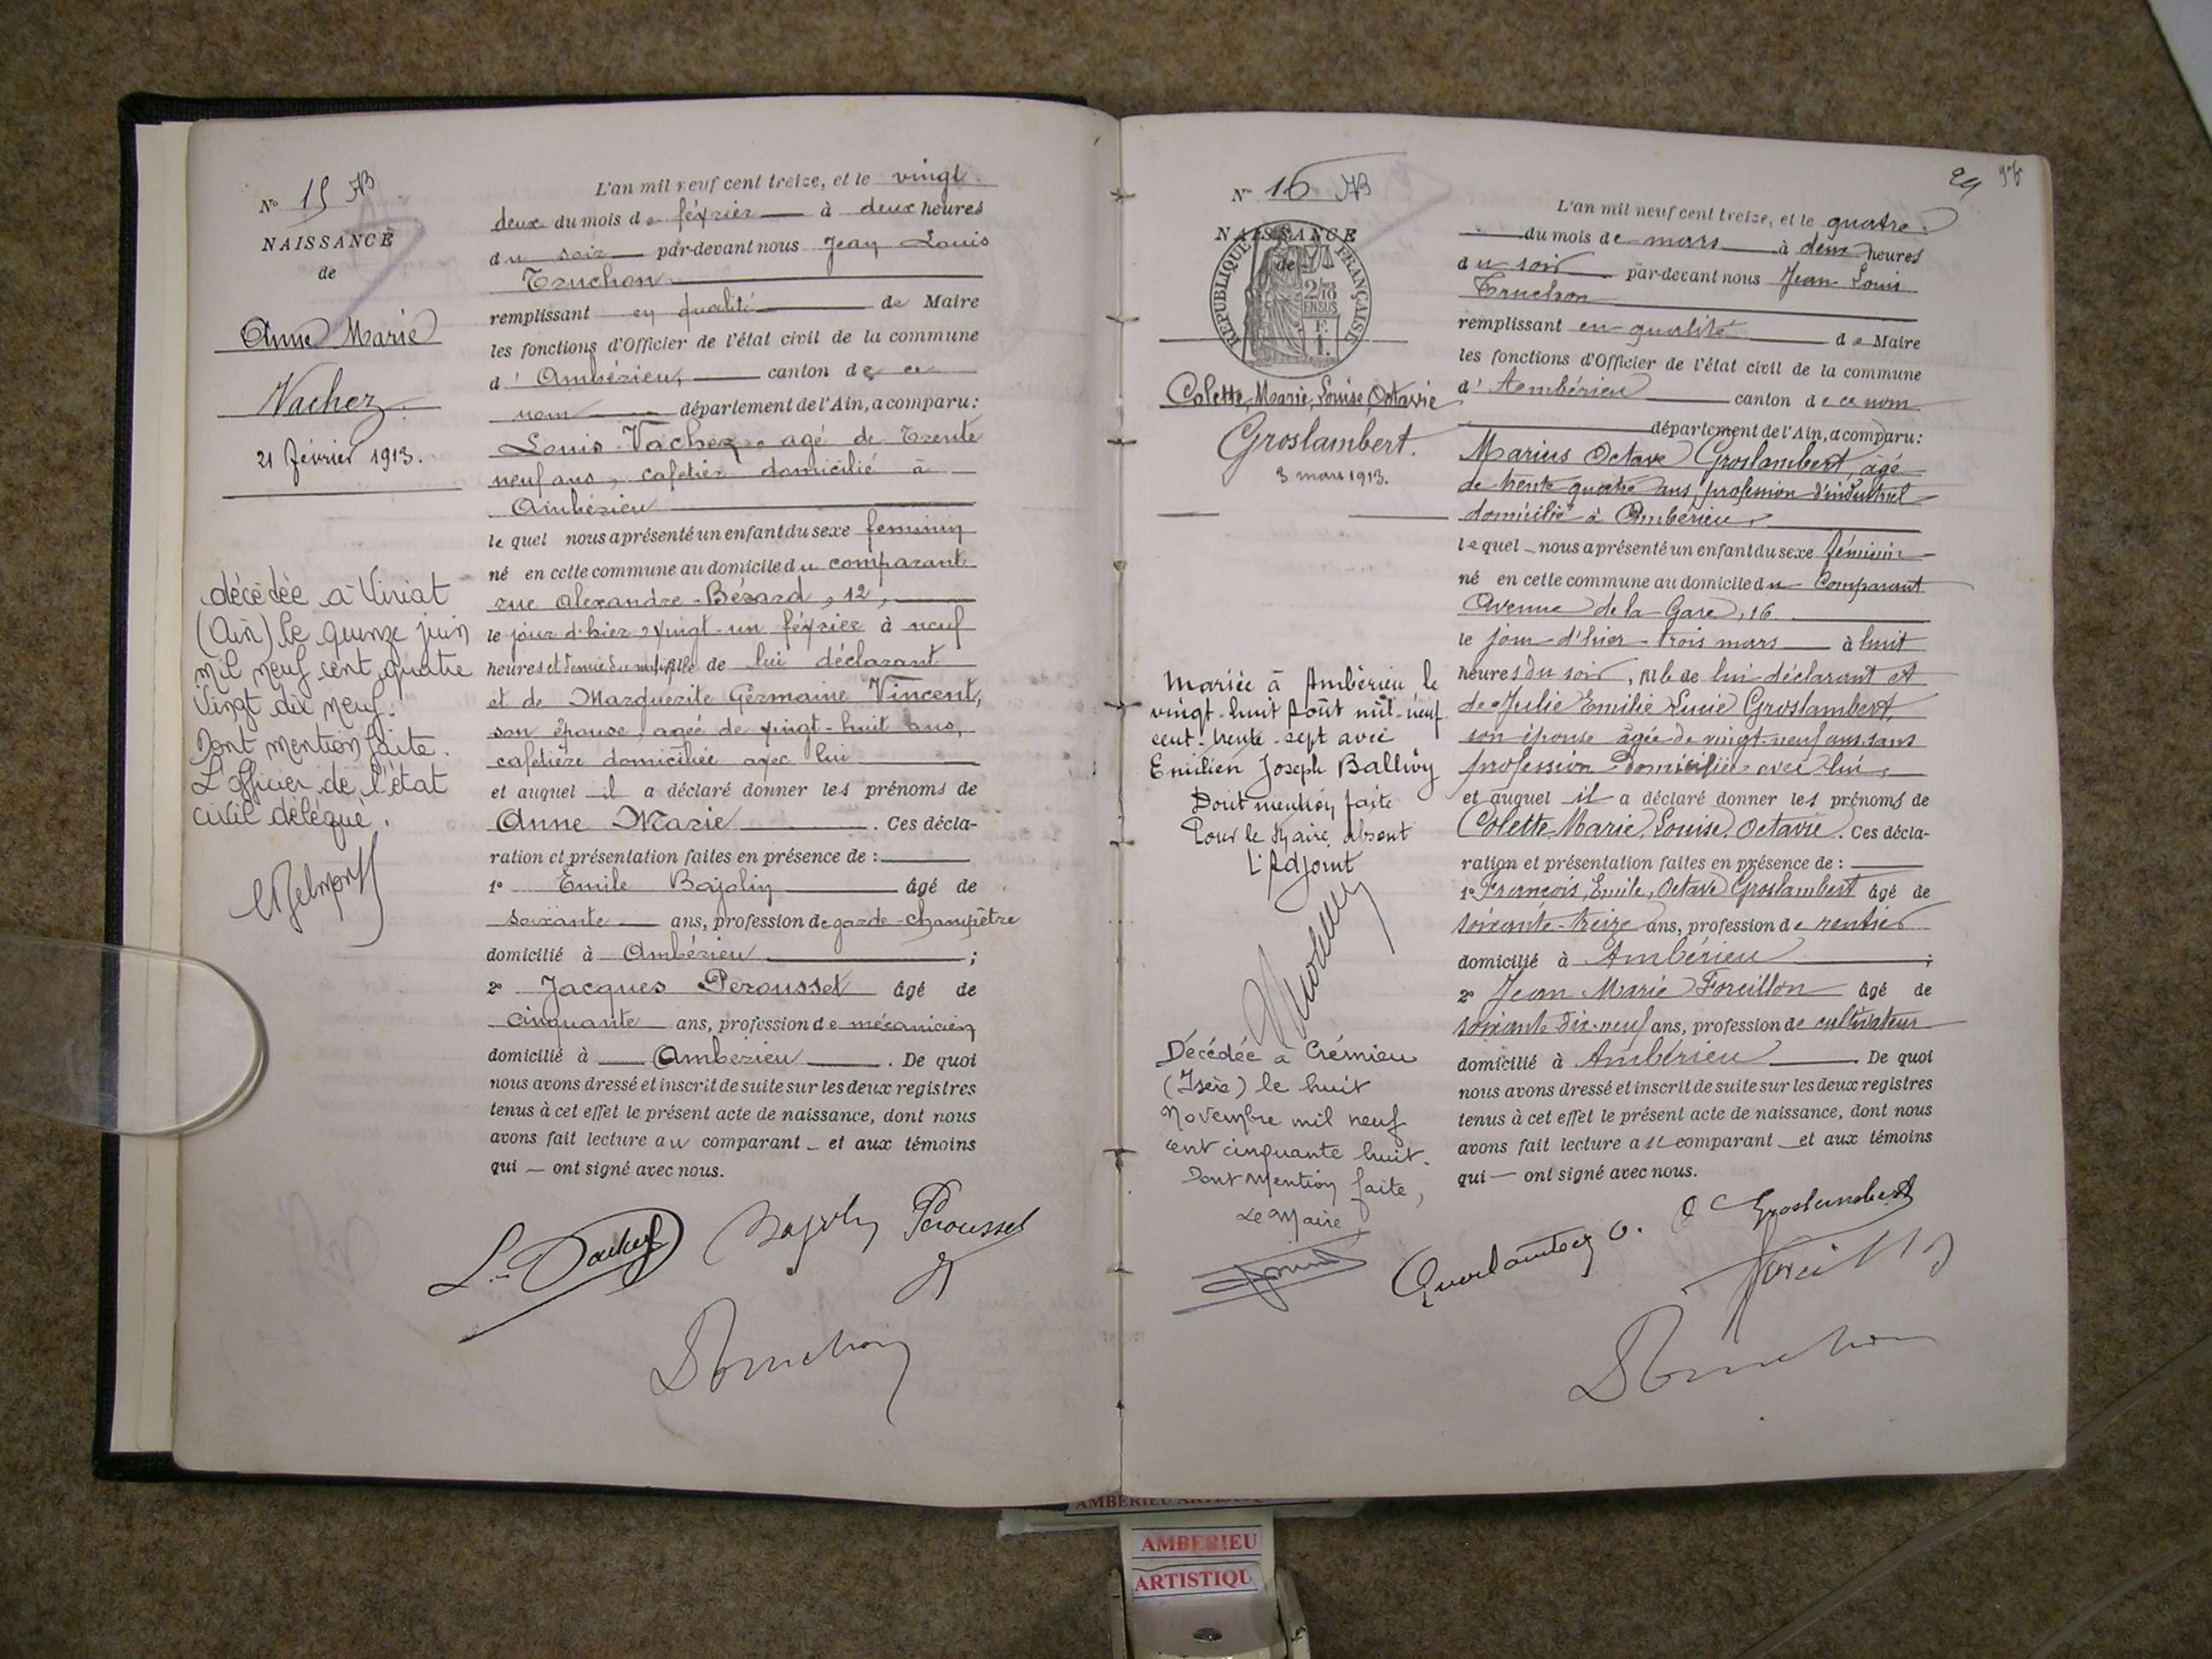 N° 15 AB
NAISSANCE
de
Anne Marie
Vachez
21 février 1913.
décédée à Viriat
(Ain) le quinze juin
mil neuf cent quatre
vingt dix neuf.
Dont mention faite.
L'officier de l'état
civil délégué.
L'an mil neuf cent treize, et le vingt
deux du mois de février à deux heures
du soir par-devant nous Jean Louis
Truchon
remplissant en qualité de Maire
les fonctions d'Officier de l'état civil de la commune
d'Ambérieu, canton de ce
nom département de l'Ain, a comparu :
Louis Vachez, agé de trente
neuf ans, cafetier domicilié à
Ambérieu
lequel nous a présenté un enfant du sexe féminin
né en cette commune au domicile du comparant
rue Alexandre-Bérard, 12,
le jour d'hier vingt-un février à neuf
heures et demie du matin, fille de lui déclarant
et de Marguerite Germaine Vincent,
son épouse, agée de vingt-huit ans,
cafetière domiciliée avec lui
et auquel il a déclaré donner les prénoms de
Anne Marie. Ces décla-
ration et présentation faites en présence de :
1° Emile Bajolin âgé de
soixante ans, profession de garde-champêtre
domicilié à Ambérieu ;
2° Jacques Perousset âgé de
cinquante ans, profession de mécanicien
domicilié à Ambérieu. De quoi
nous avons dressé et inscrit de suite sur les deux registres
tenus à cet effet le présent acte de naissance, dont nous
avons fait lecture au comparant et aux témoins
qui ont signé avec nous.
Bajolin Perousset
Truchon
29
N° 16 AB
NAISSANCE
de
REPUBLIQUE FRANÇAISE
2/10
EN SUS
Colette, Marie, Louise, Octavie
Groslambert.
3 mars 1913.
Mariée à Ambérieu le
vingt-huit août mil-neuf
cent-trente-sept avec
Emilien Joseph Ballivy
Dont mention faite
Pour le Maire absent
L'Adjoint
Décédée à Crémieu
(Isère) le huit
Novembre mil neuf
cent cinquante huit.
Dont Mention faite,
Le Maire
L'an mil neuf cent treize, et le quatre
du mois de mars à deux heures
du soir par-devant nous Jean Louis
Truchon
remplissant en qualité de Maire
les fonctions d'Officier de l'état civil de la commune
d'Ambérieu canton de ce nom
département de l'Ain, a comparu :
Marius Octave Groslambert, âgé
de trente quatre ans, profession d'industriel
domicilié à Ambérieu,
lequel nous a présenté un enfant du sexe féminin
né en cette commune au domicile du Comparant
Avenue de la Gare, 16
le jour d'hier trois mars à huit
heures du soir, fille de lui déclarant et
de Julie Emilie Lucie Groslambert,
son épouse âgée de vingt-neuf ans sans
profession domiciliée avec lui,
et auquel il a déclaré donner les prénoms de
Colette, Marie, Louise, Octavie. Ces décla-
ration et présentation faites en présence de :
1° François, Emile, Octave Groslambert âgé de
soixante-treize ans, profession de rentier
domicilié à Ambérieu ;
2° Jean Marie Foreillon âgé de
soixante dix-neuf ans, profession de cultivateur
domicilié à Ambérieu. De quoi
nous avons dressé et inscrit de suite sur les deux registres
tenus à cet effet le présent acte de naissance, dont nous
avons fait lecture au comparant et aux témoins
qui ont signé avec nous.
Groslambert O. O Groslambert
Truchon
AMBERIEU ARTISTIQ
AMBERIEU
ARTISTIQU